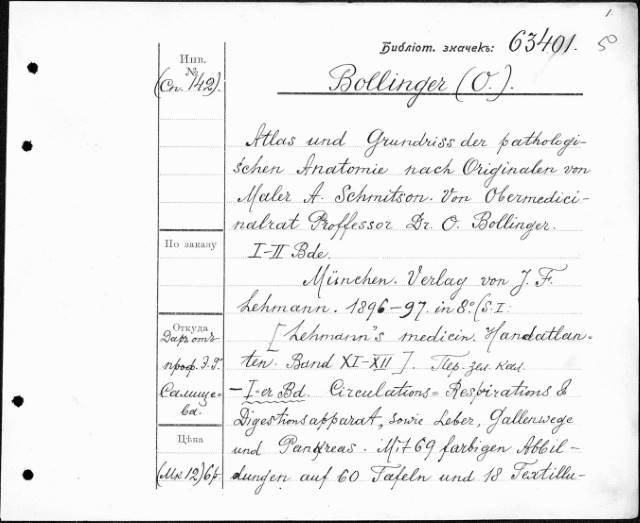 1.
Библіот. значекъ: 63401. 5
Инв.
№
(Сп. 142).
Bollinger (O.).
Atlas und Grundriss der pathologi-
schen Anatomie nach Originalen von
Maler A. Schmitson. Von Obermedici-
nalrat Proffessor Dr. O. Bollinger.
I-II Bde.
München. Verlag von J. F.
Lehmann. 1896-97. in 8º. (S: I:
[Lehmann's medicin. Handatlan-
ten. Band XI-XII]. Пер. зел. кал.
- I-er Bd. Circulations= Respirations &
Digestionsapparat, sowie Leber, Gallenwege
und Pankreas. Mit 69 farbigen Abbil-
dungen auf 60 Tafeln und 18 Textillu-
По заказу
Откуда
Даръ отъ
проф. Э. Г.
Салище-
ва.
Цѣна
(Мк 12) 6 р.